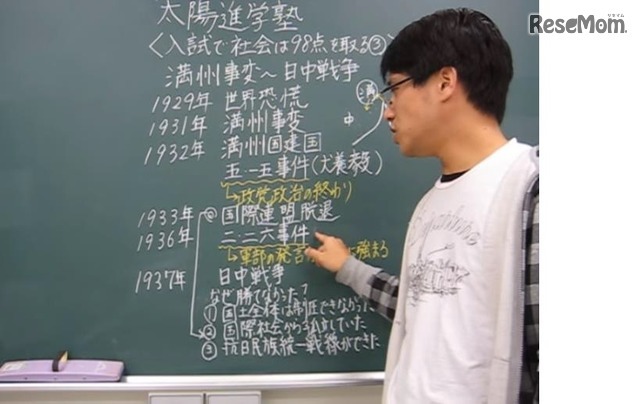 リセマム
ReseMom.
太陽進学塾
〈入試で社会は98点を取る③〉
満州事変〜日中戦争
満
中
1929年 世界恐慌
1931年 満州事変
1932年 満州国建国
五・一五事件(犬養毅)
↳政党政治の終わり
1933年 国際連盟脱退
1936年 二・二六事件
↳軍部の発言 強まる
1937年 日中戦争
なぜ勝てなかった?
① 国土全体は制圧できなかった
② 国際社会から孤立していた
③ 抗日民族統一戦線ができた